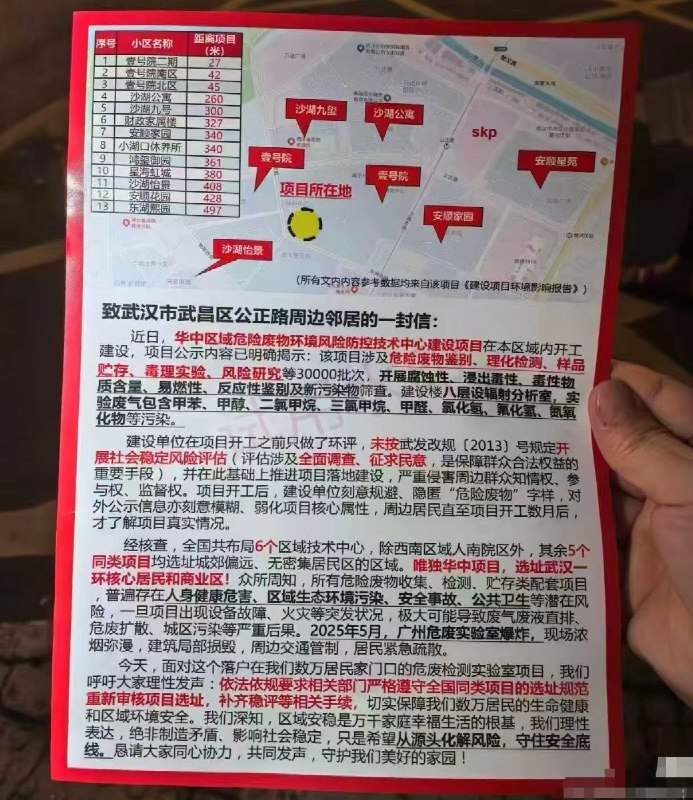 序号 小区名称 距离项目(米)
1 壹号院二期 27
2 壹号院南区 42
3 壹号院北区 45
4 沙湖公寓 260
5 沙湖九号 300
6 财政家属楼 327
7 安顺家园 340
8 小湖口休养所 340
9 鸿玺御园 361
10 星海虹城 380
11 沙湖怡景 408
12 安顺花园 428
13 东湖熙园 497
沙湖九玺
沙湖公寓
skp
壹号院
壹号院
安顺星苑
项目所在地
安顺家园
沙湖怡景
(所有文内内容参考数据均来自该项目《建设项目环境影响报告》)
致武汉市武昌区公正路周边邻居的一封信：
近日，华中区域危险废物环境风险防控技术中心建设项目在本区域内开工
建设，项目公示内容已明确揭示：该项目涉及危险废物鉴别、理化检测、样品
贮存、毒理实验、风险研究等30000批次，开展腐蚀性、浸出毒性、毒性物
质含量、易燃性、反应性鉴别及新污染物筛查。建设楼八层设辐射分析室，实
验废气包含甲苯、甲醇、二氯甲烷、三氯甲烷、甲醛、氯化氢、氟化氢、氮氧
化物等污染。
建设单位在项目开工之前只做了环评，未按武发改规〔2013〕号规定开
展社会稳定风险评估（评估涉及全面调查、征求民意，是保障群众合法权益的
重要手段），并在此基础上推进项目落地建设，严重侵害周边群众知情权、参
与权、监督权。项目开工后，建设单位刻意规避、隐匿“危险废物”字样，对
外公示信息亦刻意模糊、弱化项目核心属性，周边居民直至项目开工数月后，
才了解项目真实情况。
经核查，全国共布局6个区域技术中心，除西南区域人南院区外，其余5个
同类项目均选址城郊偏远、无密集居民区的区域。唯独华中项目，选址武汉一
环核心居民和商业区！众所周知，所有危险废物收集、检测、贮存类配套项目
，普遍存在人身健康危害、区域生态环境污染、安全事故、公共卫生等潜在风
险，一旦项目出现设备故障、火灾等突发状况，极大可能导致废气废液直排、
危废扩散、城区污染等严重后果。2025年5月，广州危废实验室爆炸，现场浓
烟弥漫，建筑局部损毁，周边交通管制，居民紧急疏散。
今天，面对这个落户在我们数万居民家门口的危废检测实验室项目，我们
呼吁大家理性发声：依法依规要求相关部门严格遵守全国同类项目的选址规范
重新审核项目选址，补齐稳评等相关手续，切实保障我们数万居民的生命健康
和区域环境安全。我们深知，区域安稳是万千家庭幸福生活的根基，我们理性
表达，绝非制造矛盾、影响社会稳定，只是希望从源头化解风险，守住安全底
线。恳请大家同心协力，共同发声，守护我们美好的家园！